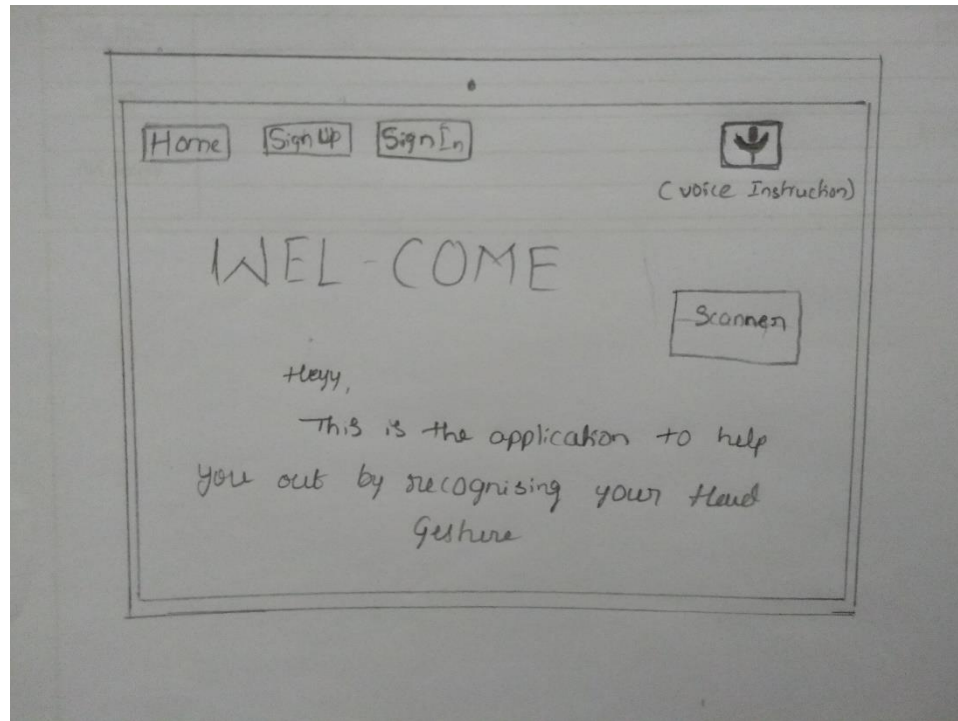 Home Sign Up Sign In
(voice Instruction)
WEL-COME
Scanner
Heyy,
This is the application to help
you out by recognising your Hand
Gesture